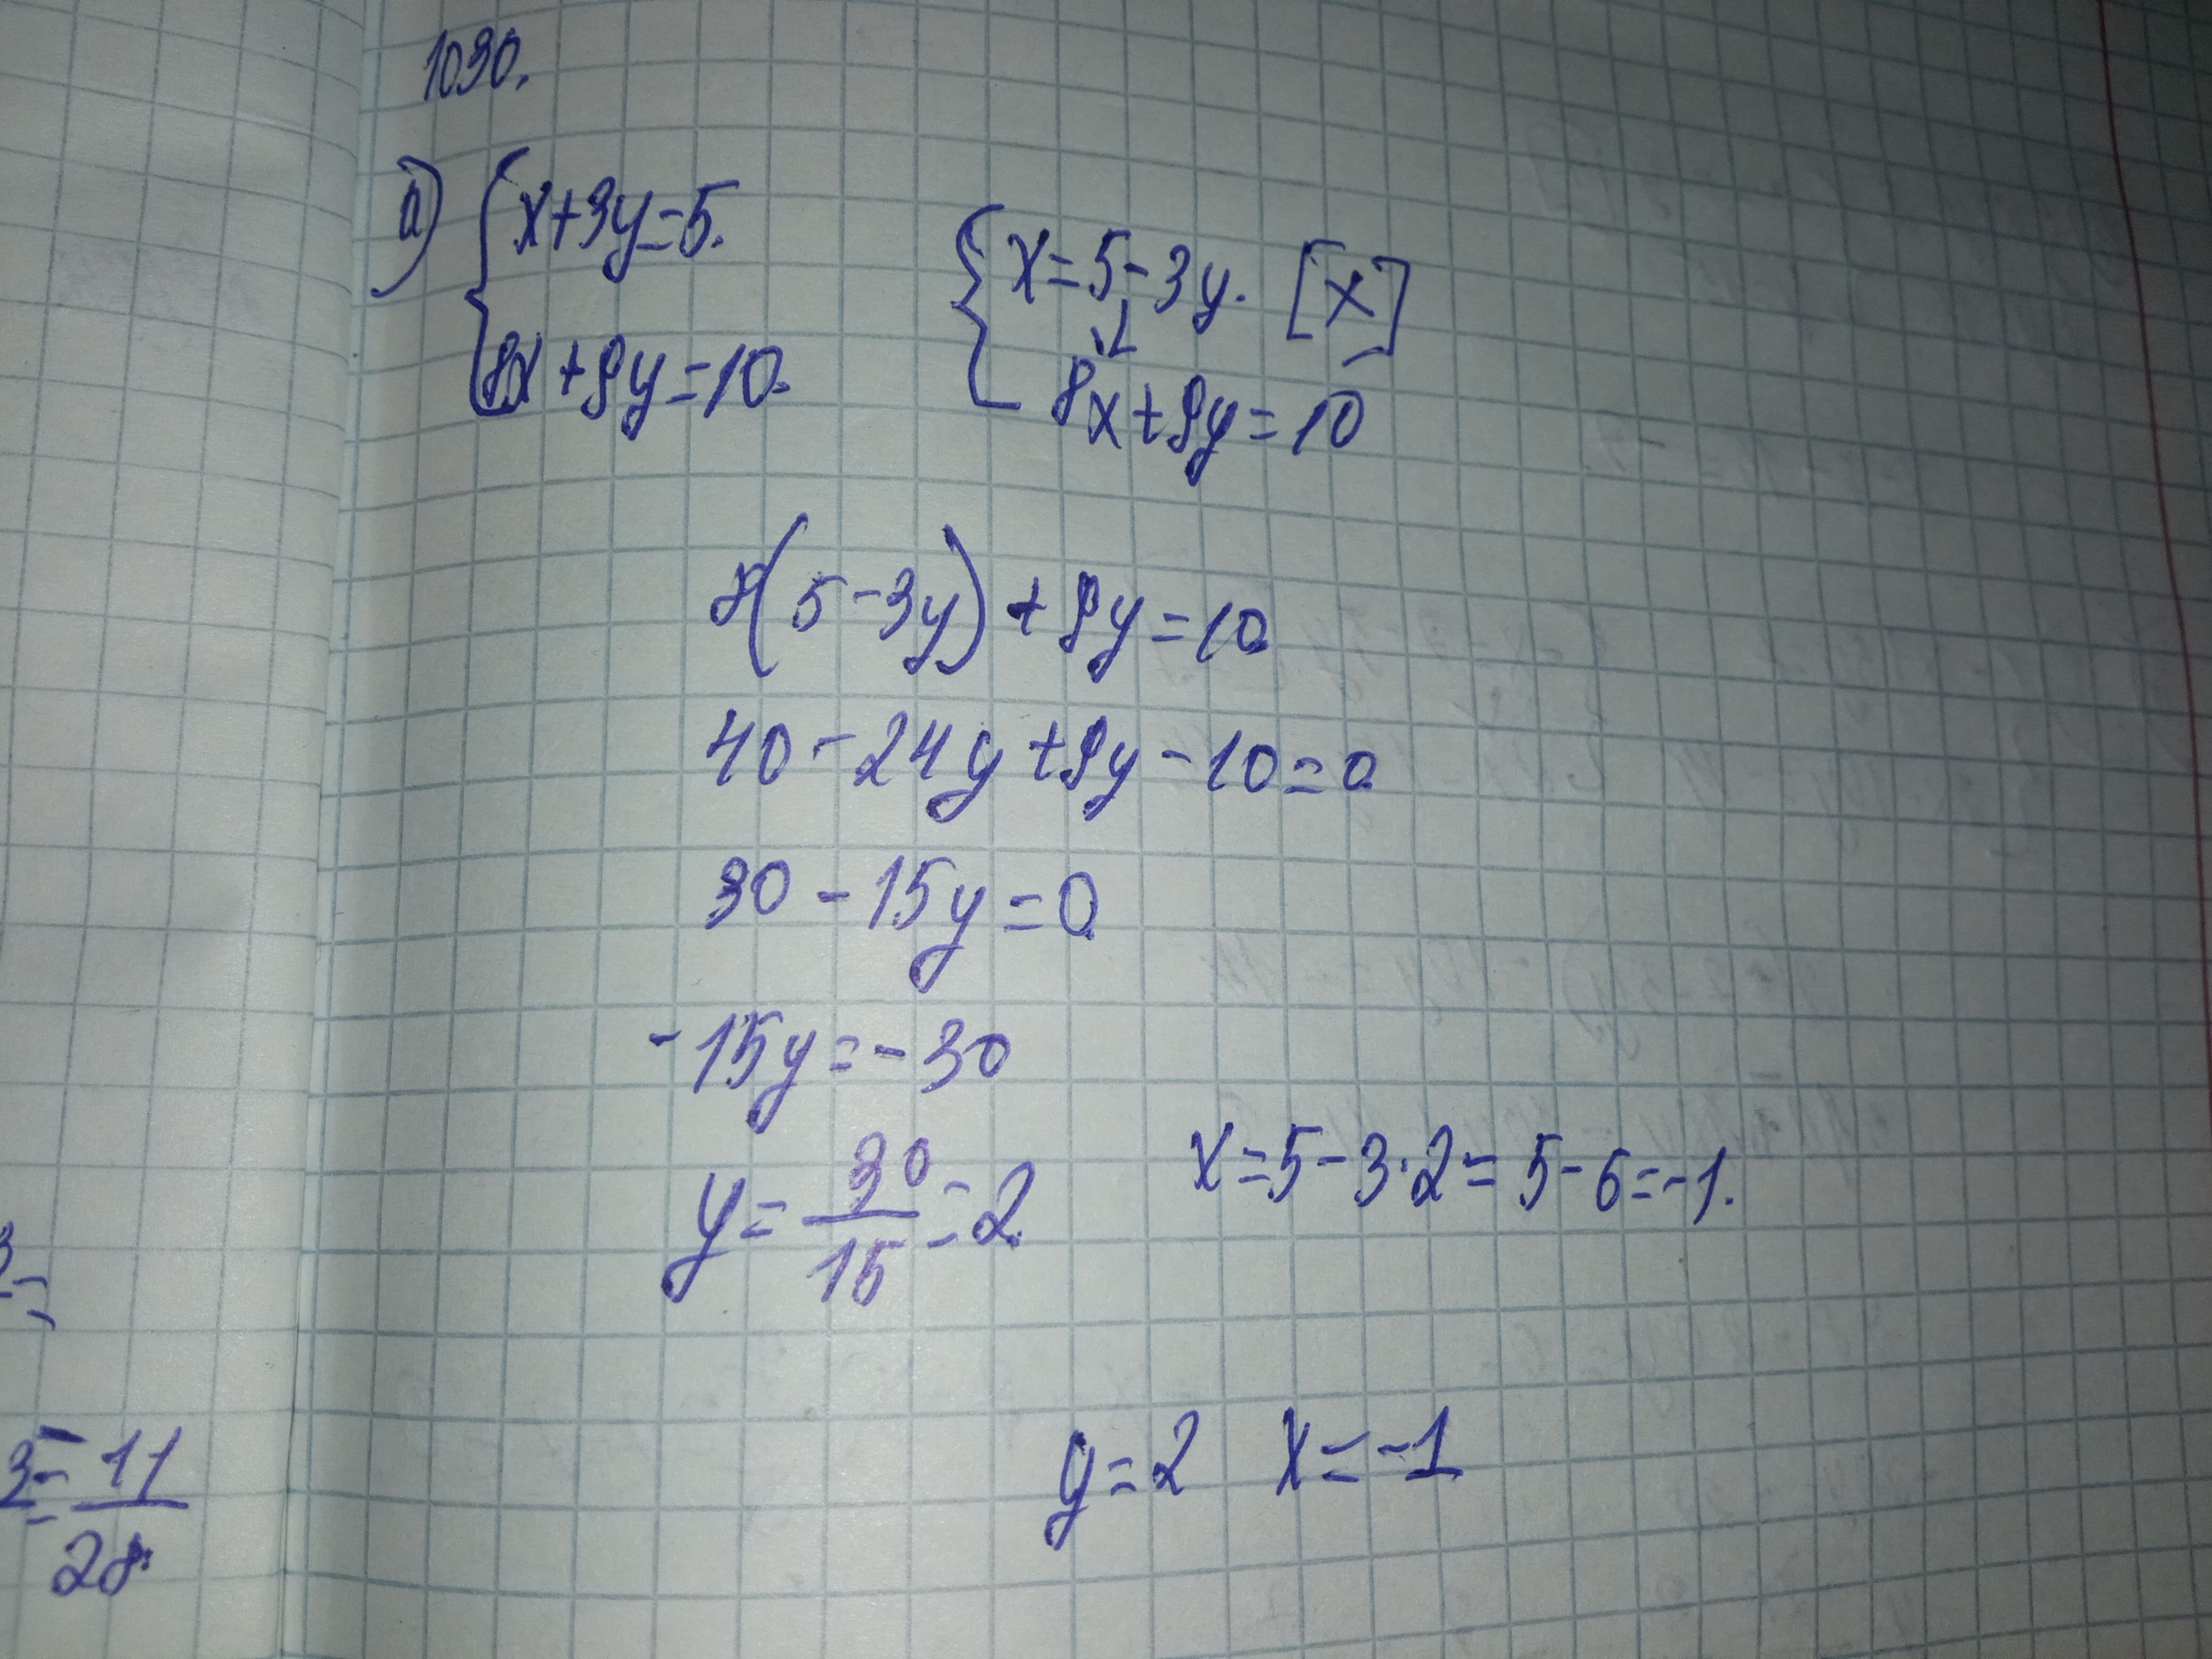 1090.
а) { x+3y=5.
8x+9y=10.
{ x=5-3y. [x]
8x+9y=10
8(5-3y)+9y=10
40-24y+9y-10=0
30-15y=0
-15y=-30
y=30/15=2
x=5-3·2=5-6=-1.
y=2 x=-1
3=
3=11/28